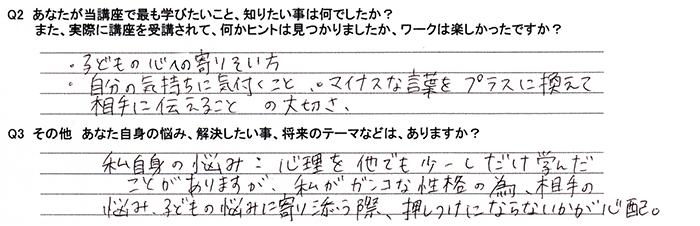 Q2 あなたが当講座で最も学びたいこと、知りたい事は何でしたか？
また、実際に講座を受講されて、何かヒントは見つかりましたか、ワークは楽しかったですか？
・子どもの心への寄りそい方
・自分の気持ちに気付くこと、・マイナスな言葉をプラスに換えて
相手に伝えること の大切さ、
Q3 その他 あなた自身の悩み、解決したい事、将来のテーマなどは、ありますか？
私自身の悩み：心理を他でも少ーしだけ学んだ
ことがありますが、私がガンコな性格の為、相手の
悩み、子どもの悩みに寄り添う際、押しつけにならないかが心配。